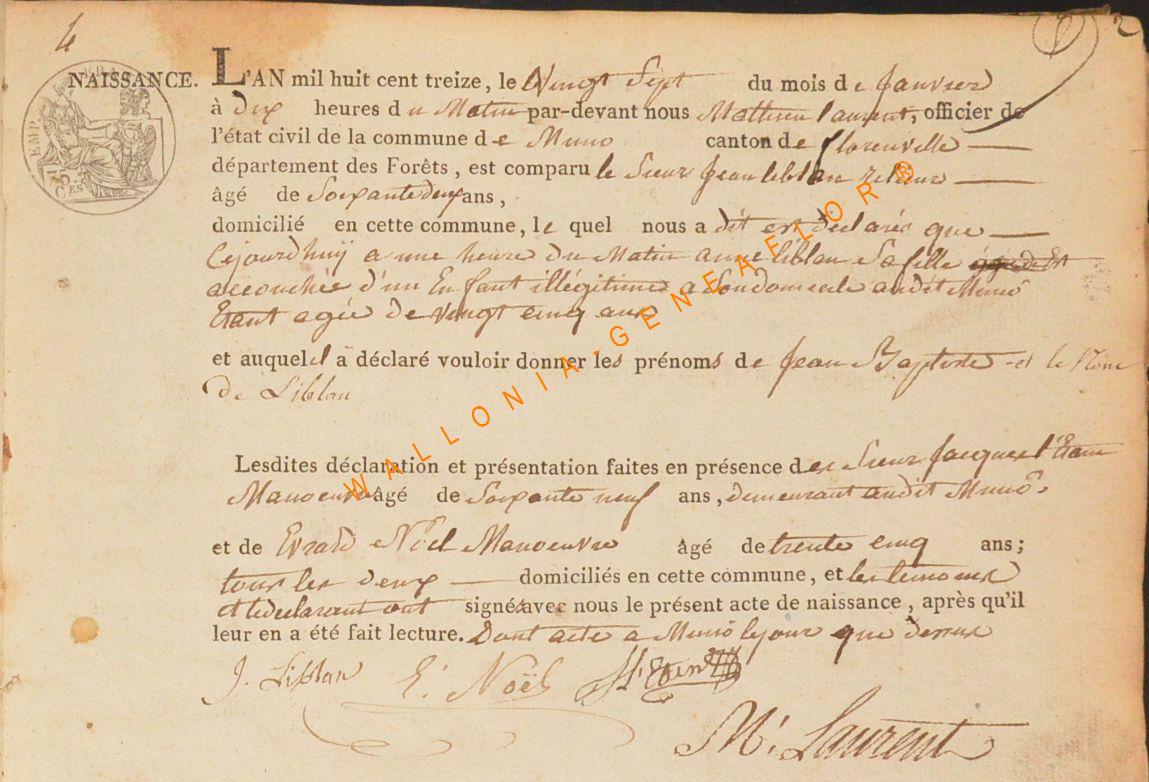 4
2
NAISSANCE. L'AN mil huit cent treize, le Vingt Sept du mois de Janvier
à dix heures du Matin par-devant nous Mathieu laurent, officier de
l'état civil de la commune de Muno canton de florenville
département des Forêts, est comparu le Sieur Jean liblan
âgé de Soixante deux ans,
domicilié en cette commune, le quel nous a dit et declarés que
Cejourdhuÿ a une heure du Matin anne liblan Sa fille
accouchée d'un Enfant illégitime a Son domicile audit Muno
Etant agée de vingt cinq ans
et auquel il a déclaré vouloir donner les prénoms de Jean Baptiste et le Nom
de Liblan
Lesdites déclaration et présentation faites en présence de Sieur Jacques
Manoeuvre âgé de Soixante neuf ans, demeurant audit Muno,
et de Evrard Noël Manoeuvre âgé de trente cinq ans;
tous les deux domiciliés en cette commune, et les temoins
et le declarant ont signés avec nous le présent acte de naissance, après qu'il
leur en a été fait lecture. Dont acte a Muno le jour que dessus
J. Liblan E. Noël
M. Laurent
WALLONIA-GENEAFLOR®